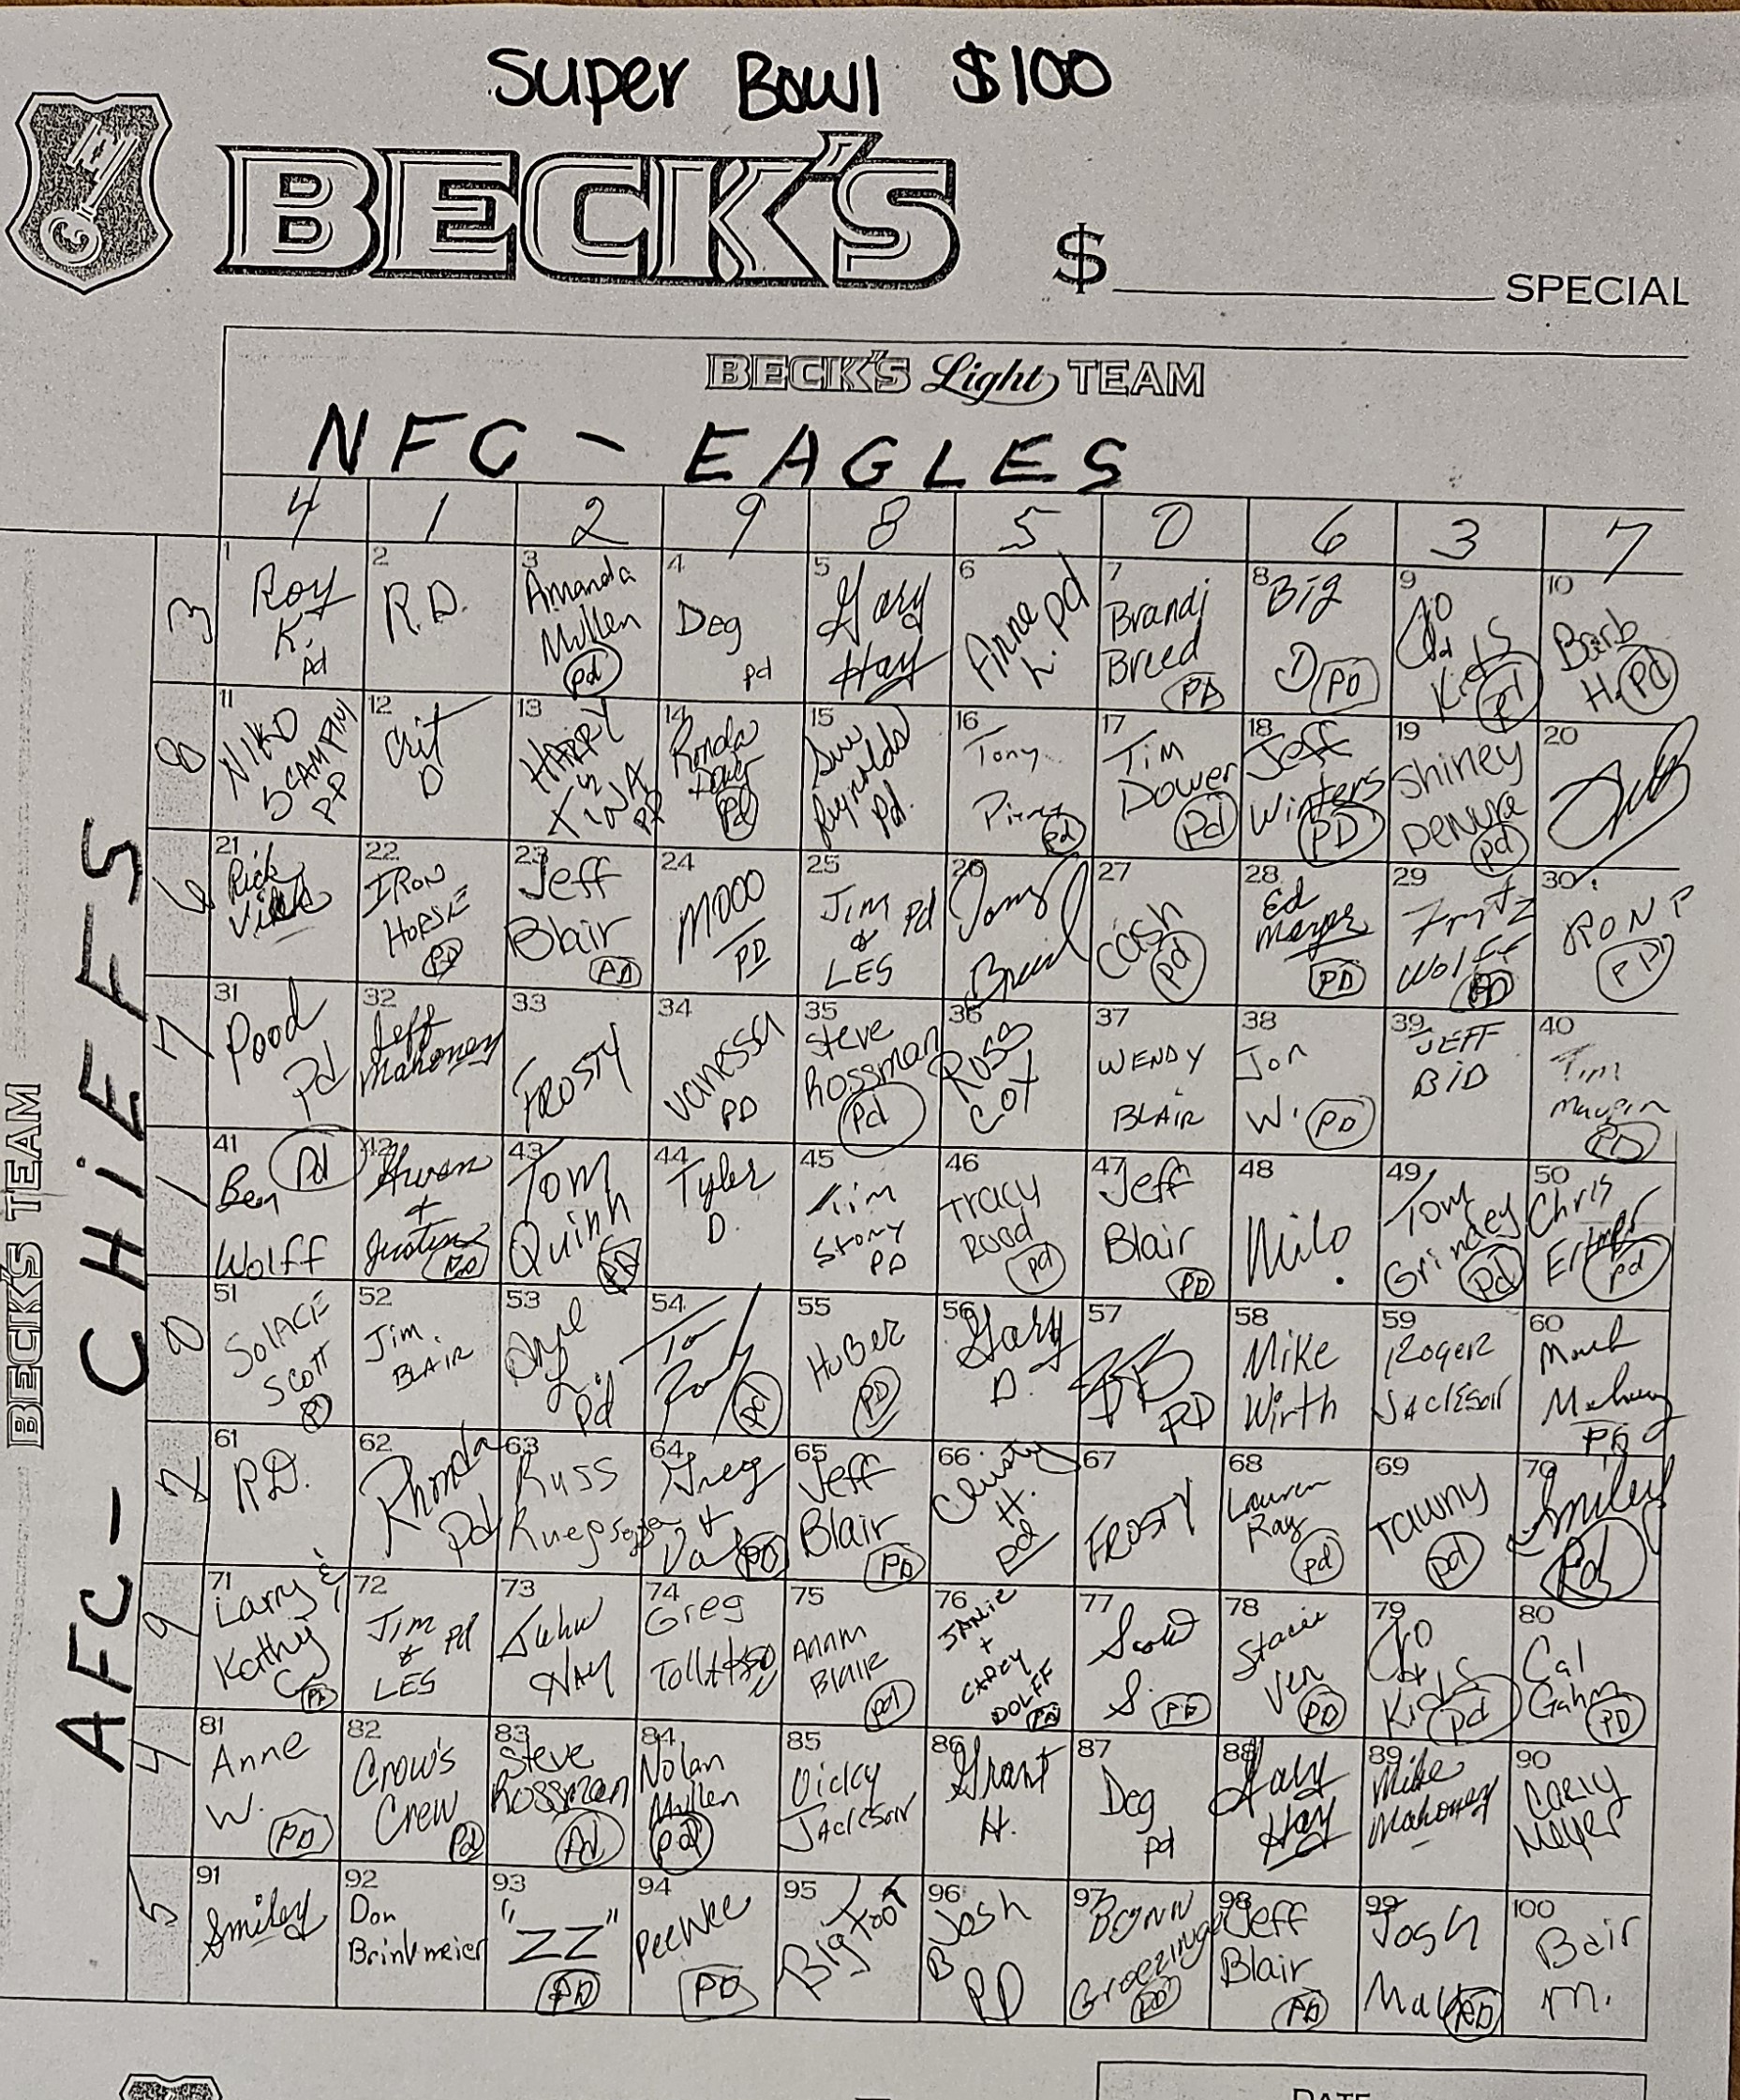 Super Bowl $100
BECK'S
$ SPECIAL
BECK'S Light TEAM
NFC - EAGLES
4 1 2 9 8 5 0 6 3 7
BECK'S TEAM
AFC - CHiEFS
3
1 Roy K. Pd
2 R.D.
3 Amanda Mullen Pd
4 Deg pd
5 Gary Hay
6 Anne L. pd
7 Brandi Breed PD
8 Big D PD
9 Jo & Kids Pd
10 Barb H. Pd
8
11 NIKO SCAMPINI PD
12 Crit D
13 HARRY & TINA PD
14 Ronda Pd
15 Sue Reynolds Pd.
16 Tony Pd
17 Tim Dower Pd
18 Jeff Winters PD
19 Shirley Pd
20
6
21 Rick
22 IRON HORSE PD
23 Jeff Blair PD
24 MOOO PD
25 Jim & LES Pd
26
27 Cash pd
28 Ed Meyer PD
29 Fritz Wolff PD
30 RON P PD
7
31 Pood Pd
32 Jeff Mahoney
33 FROSTY
34 Vanessa PD
35 Steve Rossman Pd
36 Ross Cox
37 WENDY BLAIR
38 Jon W. PD
39 JEFF BiD
40 Tim Maupin PD
1
41 Ben Wolff Pd
42 Gwen + Justin PD
43 Tom Quinn PD
44 Tyler D.
45 Tim Story PD
46 Tracy Rood pd
47 Jeff Blair PD
48 Milo.
49 Tom Grindey Pd
50 Chris pd
0
51 SOLACE SCOTT PD
52 Jim. BLAIR
53 L. Pd
54 Tom pd
55 HUBER PD
56 Gary D.
57 BB PD
58 Mike Wirth
59 Roger Jackson
60 Mark Mahoney PD
2
61 R.D.
62 Rhonda Pd
63 Russ
64 Greg + Val PD
65 Jeff Blair PD
66 Christy H. pd
67 FROSTY
68 Lauren Ray pd
69 TAWNY pd
70 Smiley Pd
9
71 Larry & Kathy C PD
72 Jim & LES Pd
73 John HAY
74 Greg
75 Adam BLAIR pd
76 JANIE + CAREY DOLFF PD
77 Scott S. PD
78 Stacie Ven PD
79 Jo & Kids pd
80 Cal Gahm PD
4
81 Anne W. PD
82 Crow's Crew Pd
83 Steve Rossman Pd
84 Nolan Mullen Pd
85 Vicky Jackson
86 Grant H.
87 Deg pd
88 Gary Hay
89 Mike Mahoney
90 Carly Meyer
5
91 Smiley
92 Don Brinkmeier
93 "ZZ" PD
94 PeeWee PD
95 Big Foot
96 Josh B PD
97 Groezinger PD
98 Jeff Blair PD
99 Josh PD
100 Bair m.
DATE